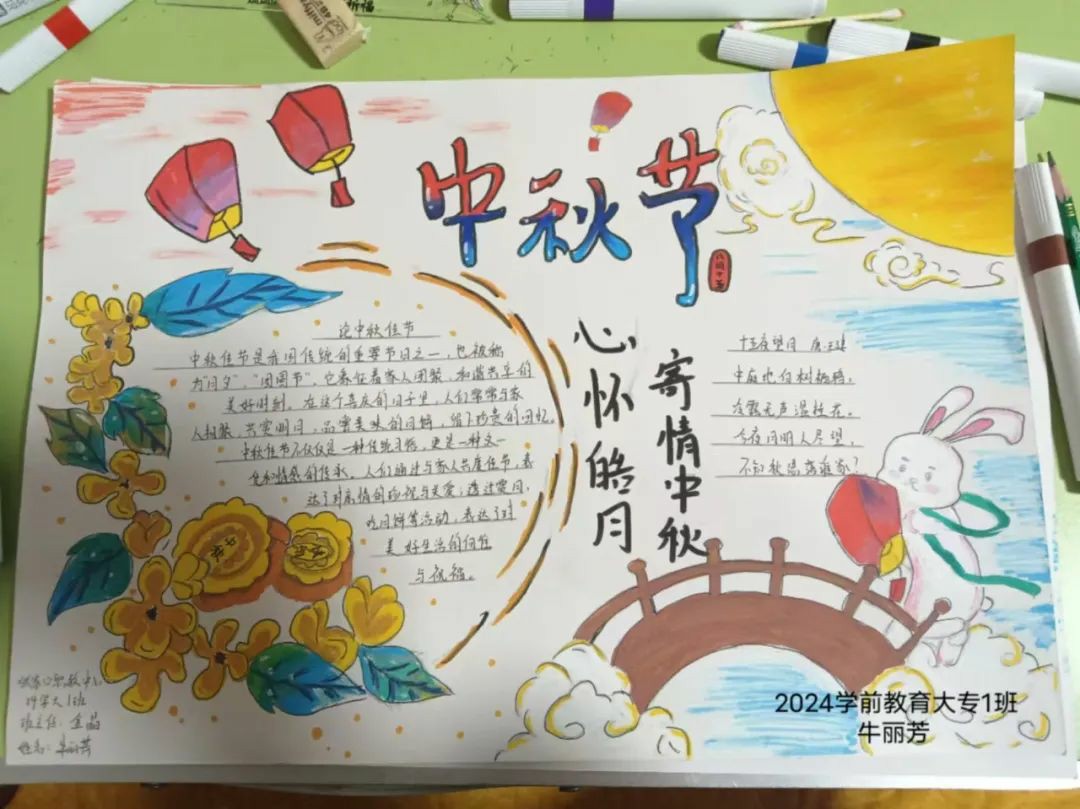 中秋节
论中秋佳节
中秋佳节是我国传统的重要节日之一，也被称
为"月夕"，"团圆节"，它象征着家人团聚，和谐共享的
美好时刻。在这个喜庆的日子里，人们常常与家
人相聚，共赏明月，品尝美味的月饼，留下珍贵的回忆。
中秋佳节不仅仅是一种传统习俗，更是一种文
化和情感的传承。人们通过与家人共度佳节，表
达了对亲情的珍视与关爱；透过赏月，
吃月饼等活动，表达了对
美好生活的向往
与祝福。
心怀皓月
寄情中秋
十五夜望月 唐·王建
中庭地白树栖鸦，
冷露无声湿桂花。
今夜月明人尽望，
不知秋思落谁家？
职教中心
学大1班
班主任：金晶
姓名：牛丽芳
2024学前教育大专1班
牛丽芳